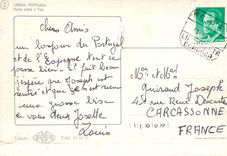 LISBOA - PORTUGAL
Ponte sobre o Tejo
Chers Amis
un bonjour du Portugal
et de l'Espagne tout se
passe bien il fait beau
j'espère que Joseph est
rentré et va bien
une grosse bise
à vous deux Josette
Louis
Mr et Mme
Guiraud Joseph
rue René Descartes
CARCASSONNE
FRANCE